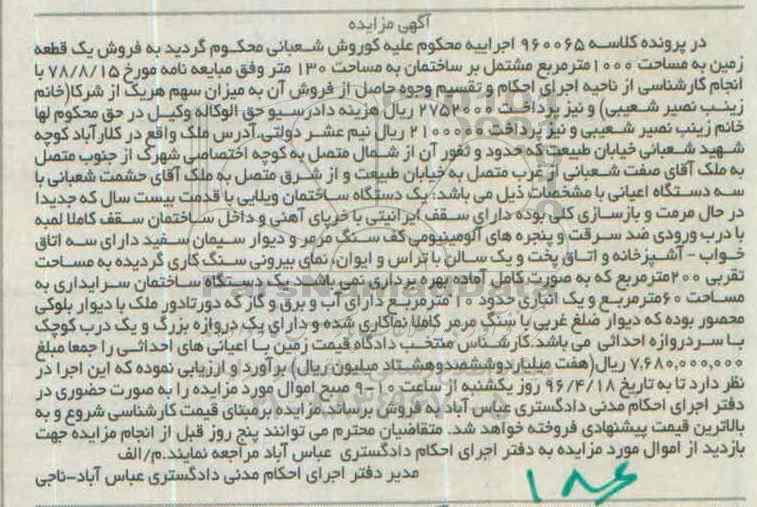 آگهی مزایده
در پرونده کلاسه ۹۶۰۰۶۵ اجراییه محکوم علیه کوروش شعبانی محکوم گردید به فروش یک قطعه
زمین به مساحت ۱۰۰۰مترمربع مشتمل بر ساختمان به مساحت ۱۳۰ متر وفق مبایعه نامه مورخ ۷۸/۸/۱۵ با
انجام کارشناسی از ناحیه اجرای احکام و تقسیم وجوه حاصل از فروش آن به میزان سهم هریک از شرکا(خانم
زینب نصیر شعیبی) و نیز پرداخت ۲۷۵۲۰۰۰ ریال هزینه دادرسیو حق الوکاله وکیل در حق محکوم لها
خانم زینب نصیر شعیبی و نیز پرداخت ۲۱۰۰۰۰۰ ریال نیم عشر دولتی.آدرس ملک واقع در کلارآباد کوچه
شهید شعبانی خیابان طبیعت که حدود و ثغور آن از شمال متصل به کوچه اختصاصی شهرک از جنوب متصل
به ملک آقای صفت شعبانی از غرب متصل به خیابان طبیعت و از شرق متصل به ملک آقای حشمت شعبانی با
سه دستگاه اعیانی با مشخصات ذیل می باشد: یک دستگاه ساختمان ویلایی با قدمت بیست سال که جدیدا
در حال مرمت و بازسازی کلی بوده دارای سقف ایرانیتی با خرپای آهنی و داخل ساختمان سقف کاملا لمبه
با درب ورودی ضد سرقت و پنجره های آلومینیومی کف سنگ مرمر و دیوار سیمان سفید دارای سه اتاق
خواب - آشپزخانه و اتاق پخت و یک سالن با تراس و ایوان، نمای بیرونی سنگ کاری گردیده به مساحت
تقربی ۲۰۰مترمربع که به صورت کامل آماده بهره برداری نمی باشد. یک دستگاه ساختمان سرایداری به
مساحت ۶۰مترمربع و یک انباری حدود ۱۰مترمربع دارای آب و برق و گاز که دورتادور ملک با دیوار بلوکی
محصور بوده که دیوار ضلع غربی با سنگ مرمر کاملا نماکاری شده و دارای یک دروازه بزرگ و یک درب کوچک
با سردروازه احداثی می باشد.کارشناس منتخب دادگاه قیمت زمین با اعیانی های احداثی را جمعا مبلغ
۷,۶۸۰,۰۰۰,۰۰۰ ریال(هفت میلیاردوششصدوهشتاد میلیون ریال) برآورد و ارزیابی نموده که این اجرا در
نظر دارد تا به تاریخ ۹۶/۴/۱۸ روز یکشنبه از ساعت ۱۰-۹ صبح اموال مورد مزایده را به صورت حضوری در
دفتر اجرای احکام مدنی دادگستری عباس آباد به فروش برساند.مزایده برمبنای قیمت کارشناسی شروع و به
بالاترین قیمت پیشنهادی فروخته خواهد شد. متقاضیان محترم می توانند پنج روز قبل از انجام مزایده جهت
بازدید از اموال مورد مزایده به دفتر اجرای احکام دادگستری عباس آباد مراجعه نمایند.م/الف
مدیر دفتر اجرای احکام مدنی دادگستری عباس آباد-ناجی